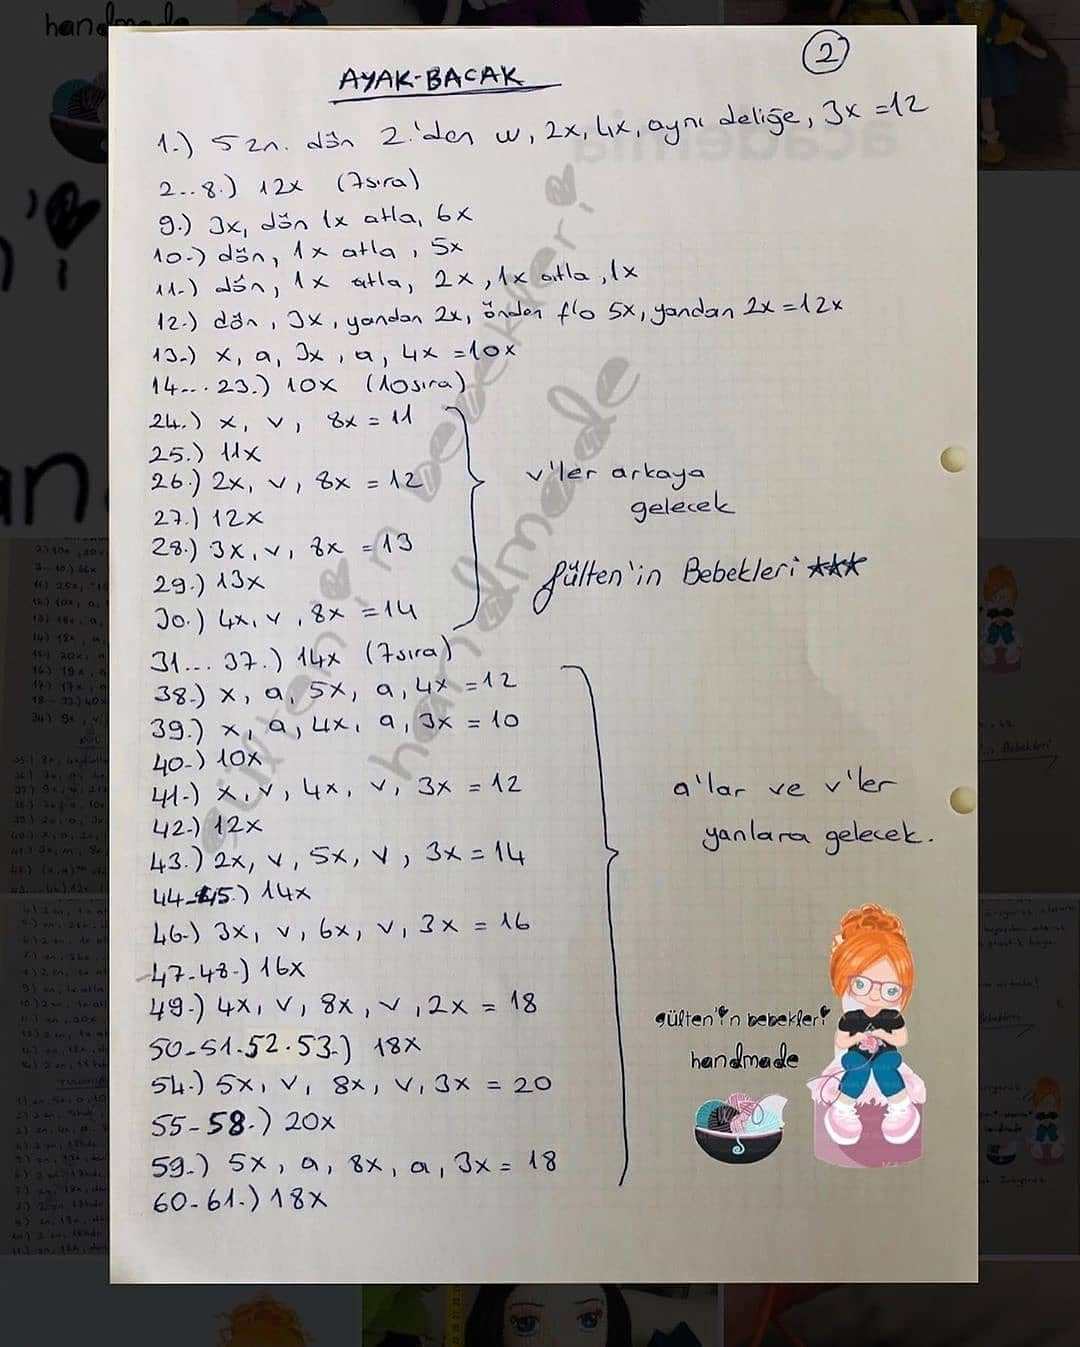 handmade
2
AYAK-BACAK
1.) 5 zn. dön 2.'den w, 2x, 4x, aynı deliğe, 3x =12
2...8.) 12x (7sıra)
9.) 3x, dön 1x atla, 6x
10.) dön, 1x atla, 5x
11.) dön, 1x atla, 2x, 1x atla, 1x
12.) dön, 3x, yandan 2x, önden flo 5x, yandan 2x =12x
13.) x, a, 3x, a, 4x =10x
14....23.) 10x (10sıra)
24.) x, v, 8x = 11
25.) 11x
26.) 2x, v, 8x = 12
v'ler arkaya
gelecek
27.) 12x
28.) 3x, v, 8x = 13
29.) 13x
Gülten'in Bebekleri ***
30.) 4x, v, 8x =14
31... 37.) 14x (7sıra)
38.) x, a, 5x, a, 4x =12
39.) x, a, 4x, a, 3x = 10
40.) 10x
41.) x, v, 4x, v, 3x = 12
a'lar ve v'ler
yanlara gelecek.
42.) 12x
43.) 2x, v, 5x, v, 3x = 14
44-45.) 14x
46.) 3x, v, 6x, v, 3x = 16
47-48.) 16x
49.) 4x, v, 8x, v, 2x = 18
50-51-52-53.) 18x
54.) 5x, v, 8x, v, 3x = 20
55-58.) 20x
59.) 5x, a, 8x, a, 3x = 18
60-61.) 18x
gülten'in bebekleri
handmade
gülten'in bebekleri
handmade